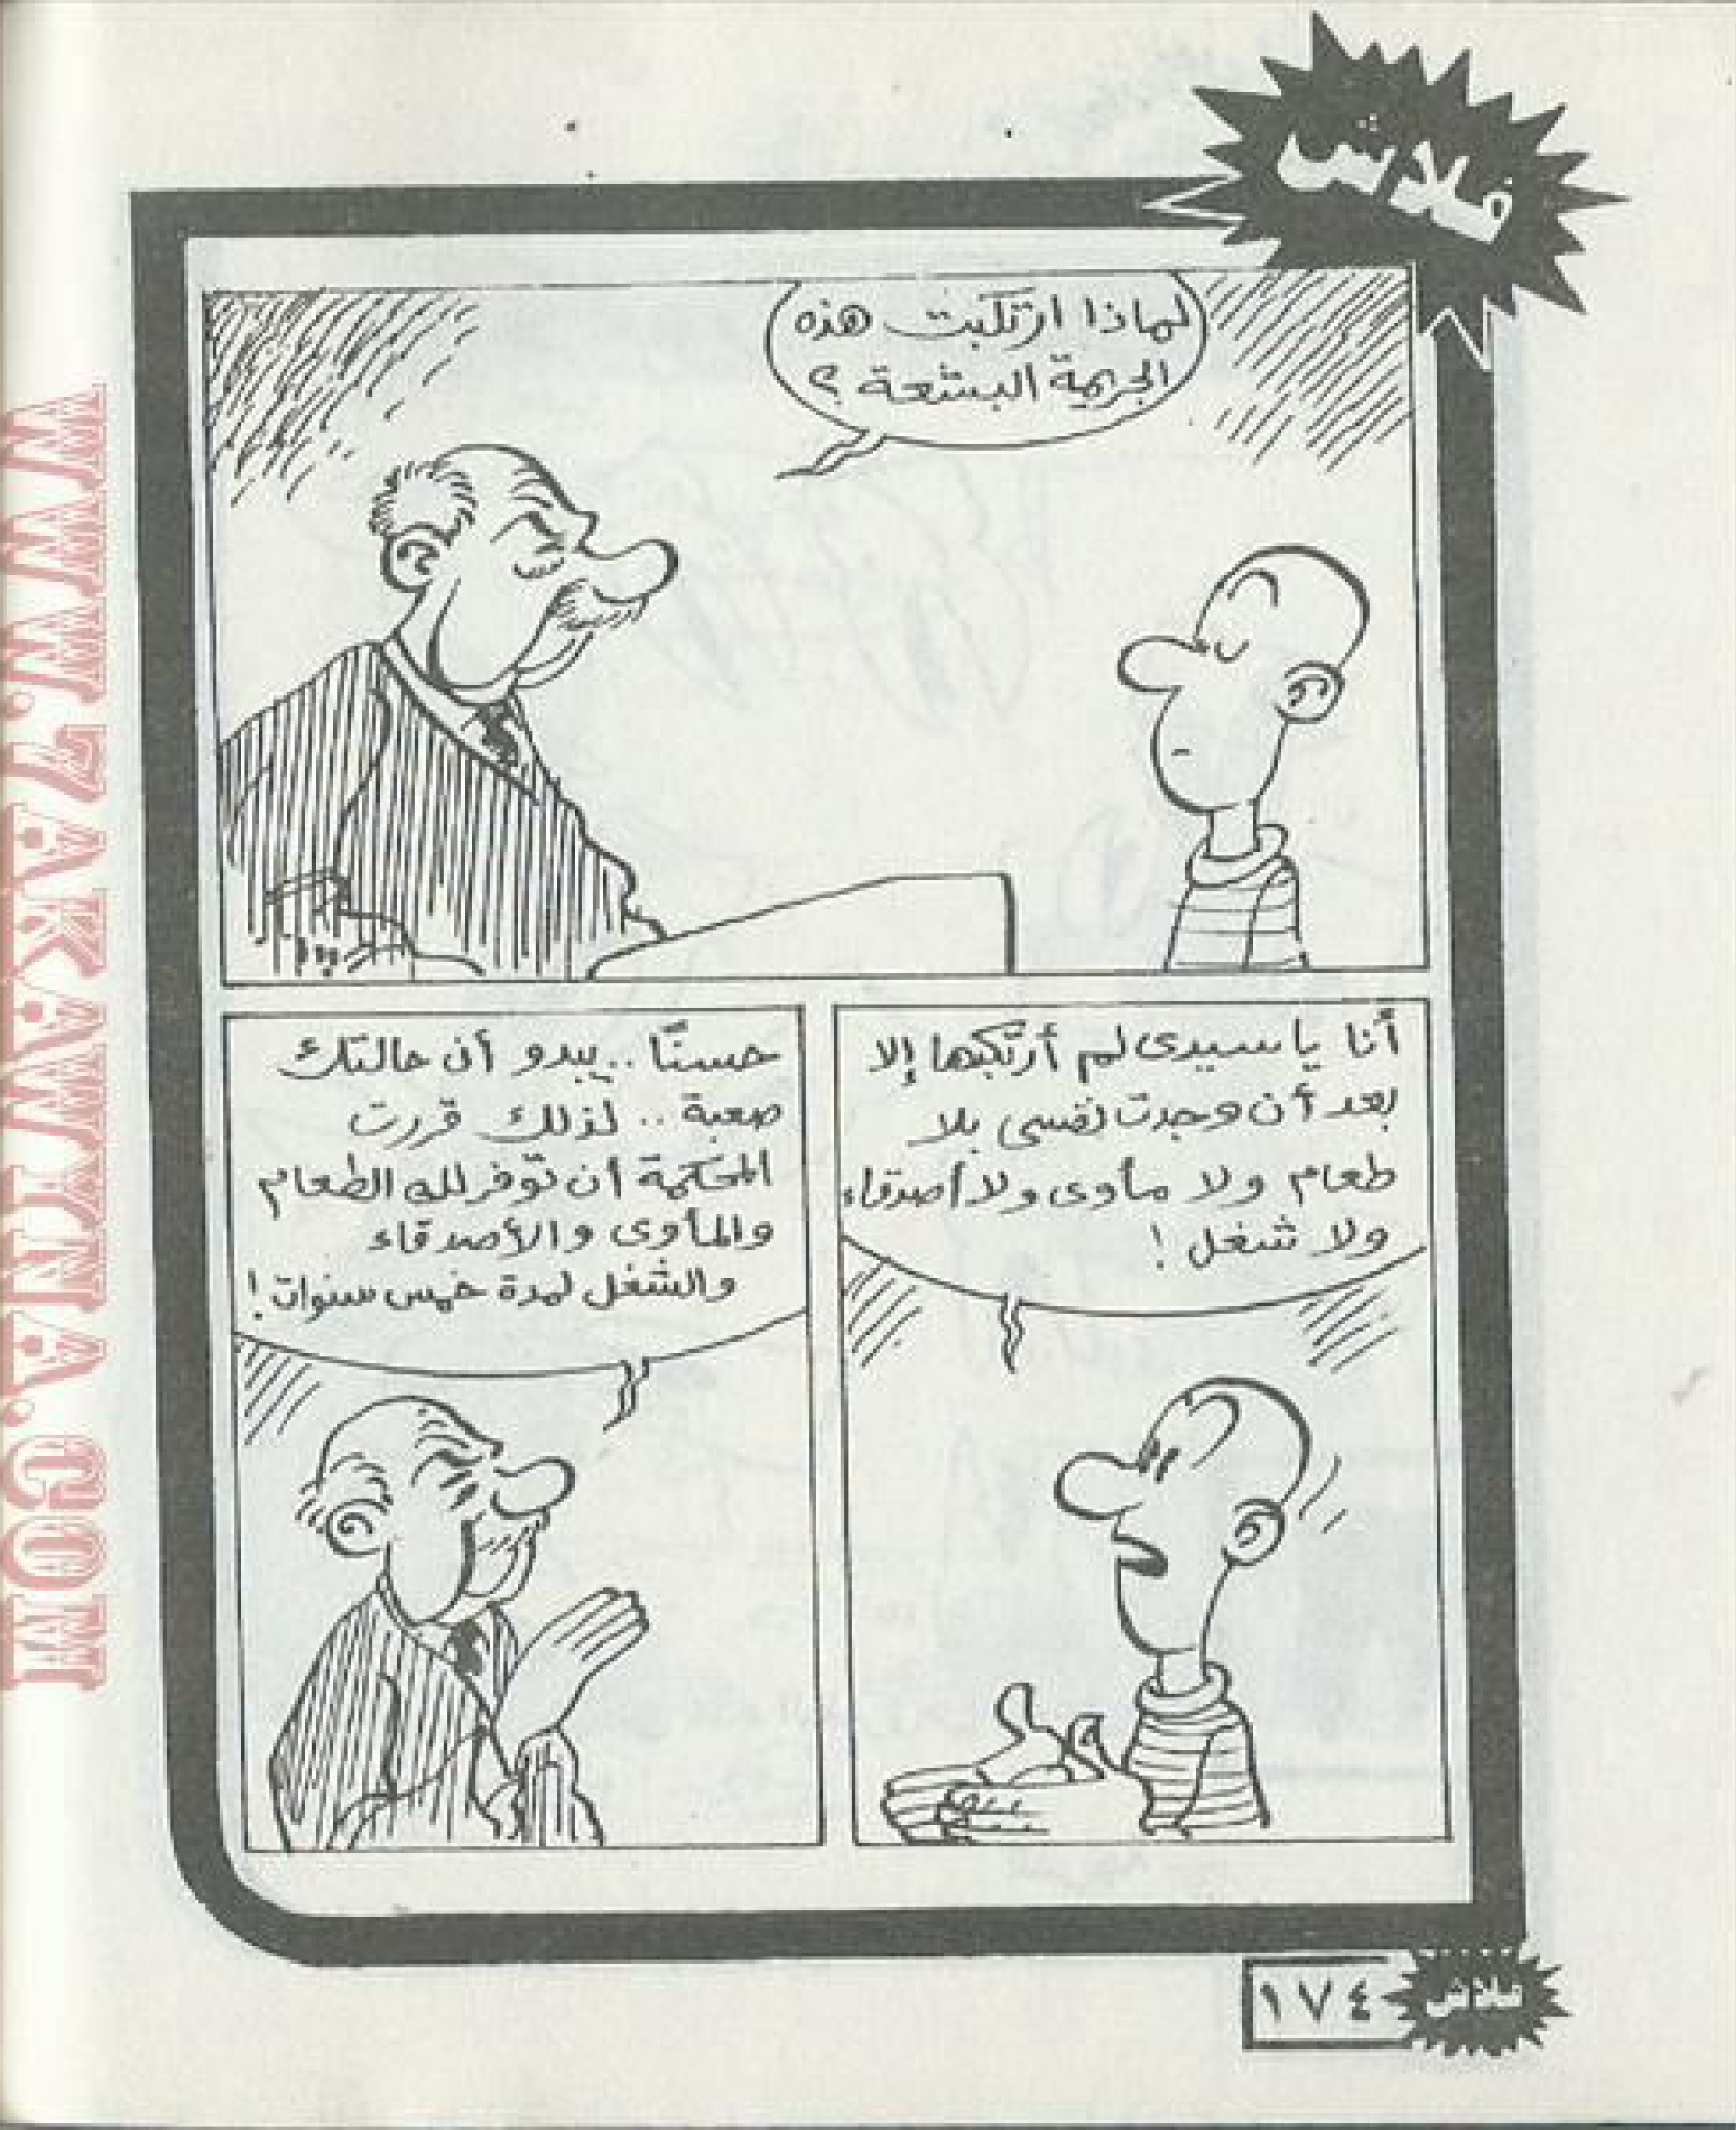 فلاش
لماذا ارتكبت هذه
الجريمة البشعة ؟
أنا يا سيدى لم أرتكبها إلا
بعد أن وجدت نفسى بلا
طعام ولا مأوى ولا أصدقاء
ولا شغل !
حسنًا .. يبدو أن حالتك
صعبة .. لذلك قررت
المحكمة أن توفر لك الطعام
والمأوى والأصدقاء
والشغل لمدة خمس سنوات !
١٧٤
فلاش
WWW.7AKAWTNA.COM